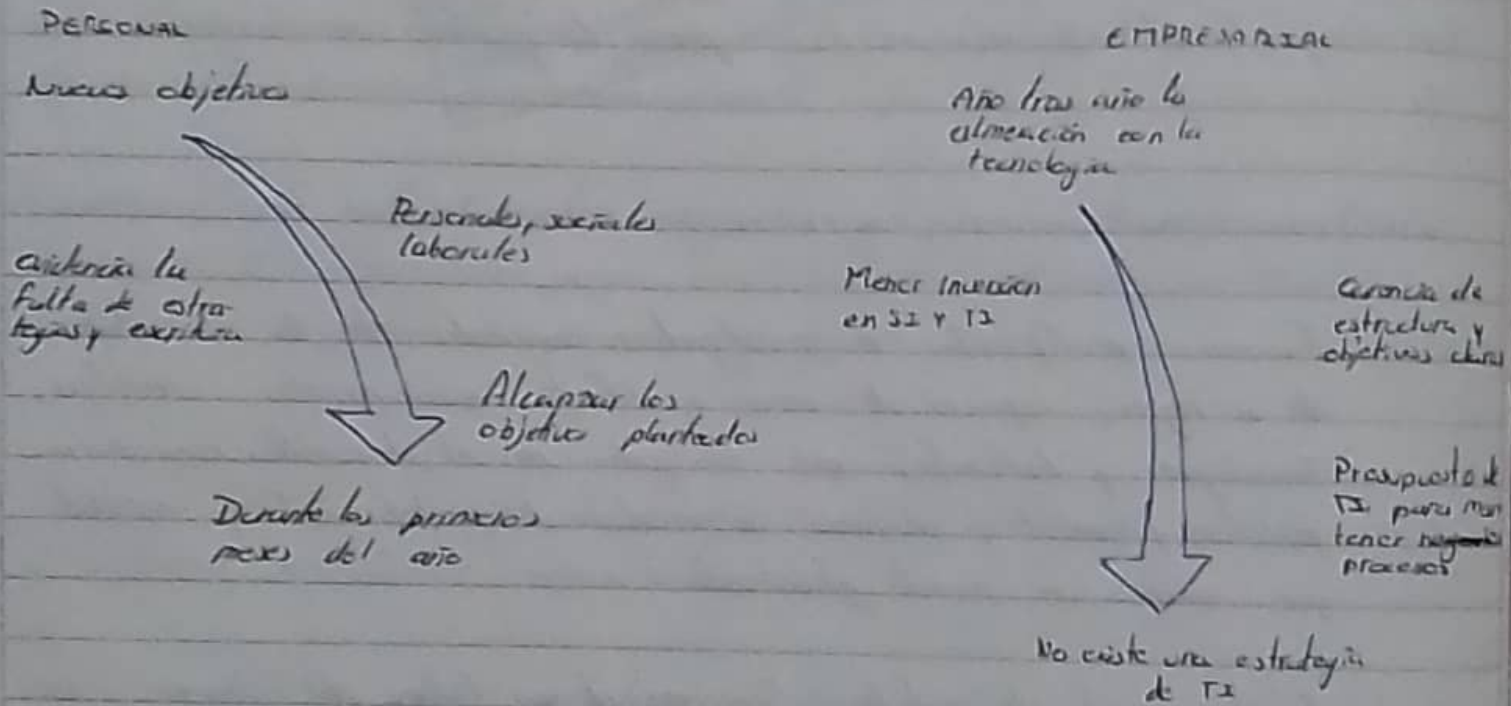 PERSONAL
Nuevos objetivos
Personales, sociales
laborales
evidencia la
falta de estra-
tegias y
Alcanzar los
objetivos planteados
Durante los primeros
meses del año
EMPRESARIAL
Año tras año la
alineación con la
tecnología
Menor inversión
en SI y TI
Carencia de
estructura y
objetivos claros
Presupuesto de
TI para man
tener
procesos
No existe una estrategia
de TI